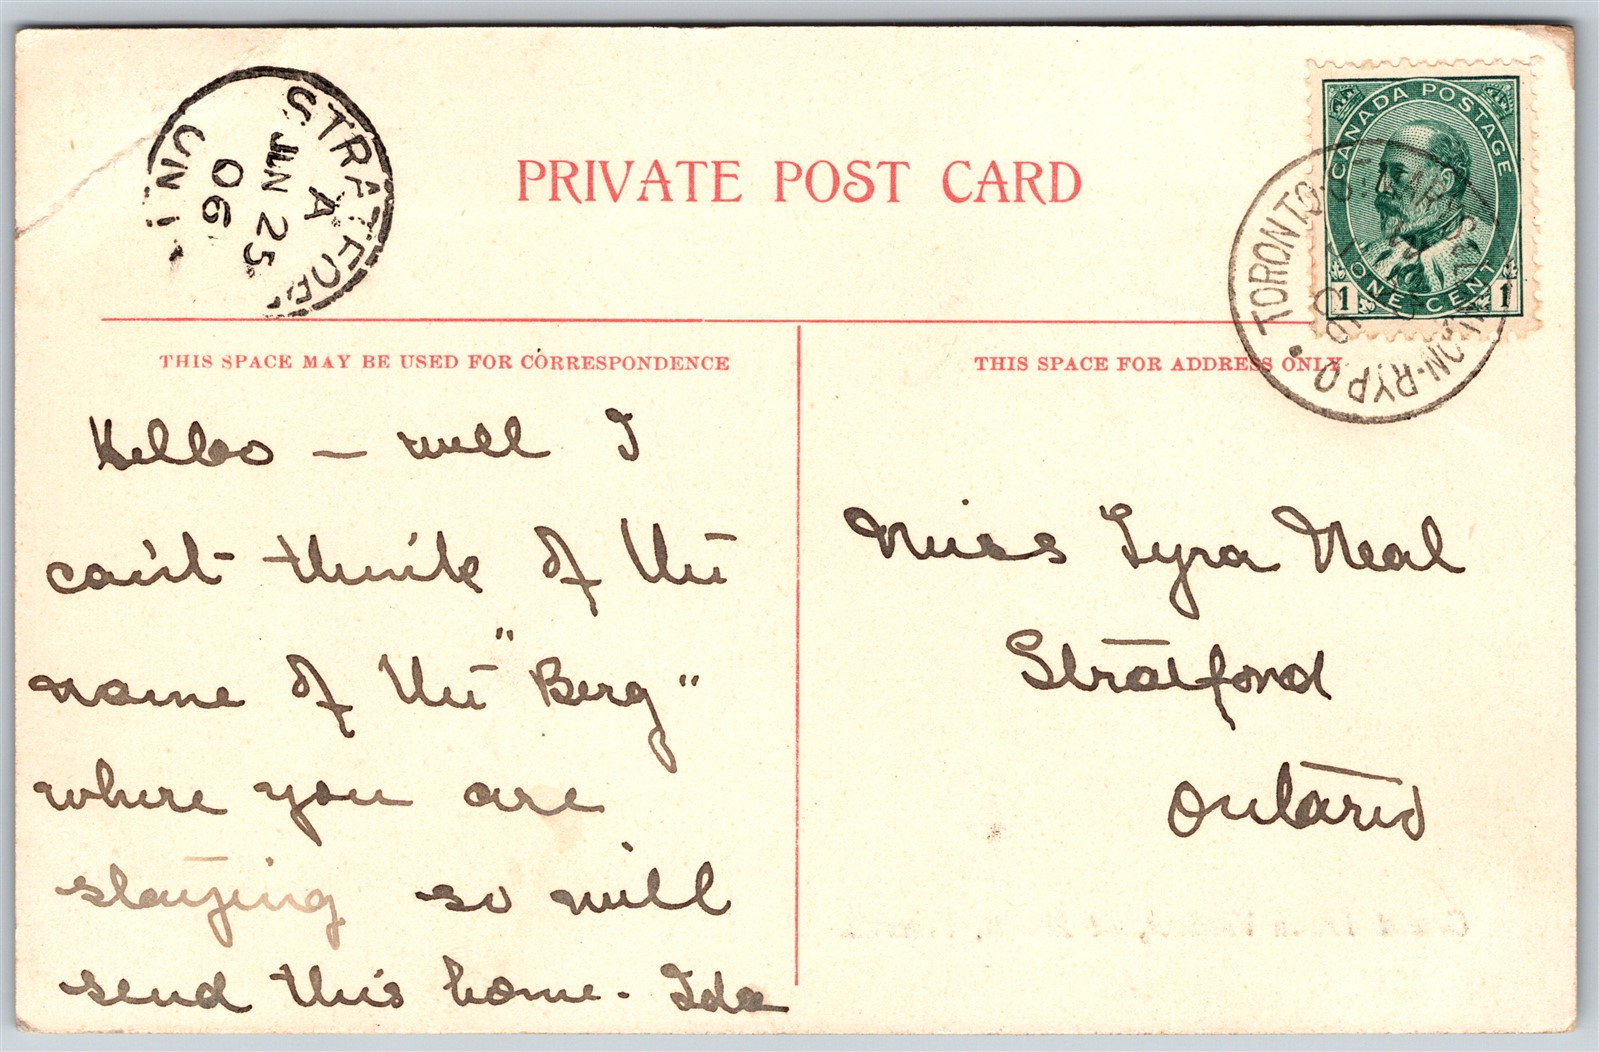 STRATFORD
A
JUN 25
06
ONT
PRIVATE POST CARD
CANADA POSTAGE
1 ONE CENT 1
TORONTO
R.P.O.
THIS SPACE MAY BE USED FOR CORRESPONDENCE
THIS SPACE FOR ADDRESS ONLY
Helloo – well I
can't think of the
name of the "Berg"
where you are
staying so will
send this home. Ida
Miss Lyra Neal
Stratford
Ontario